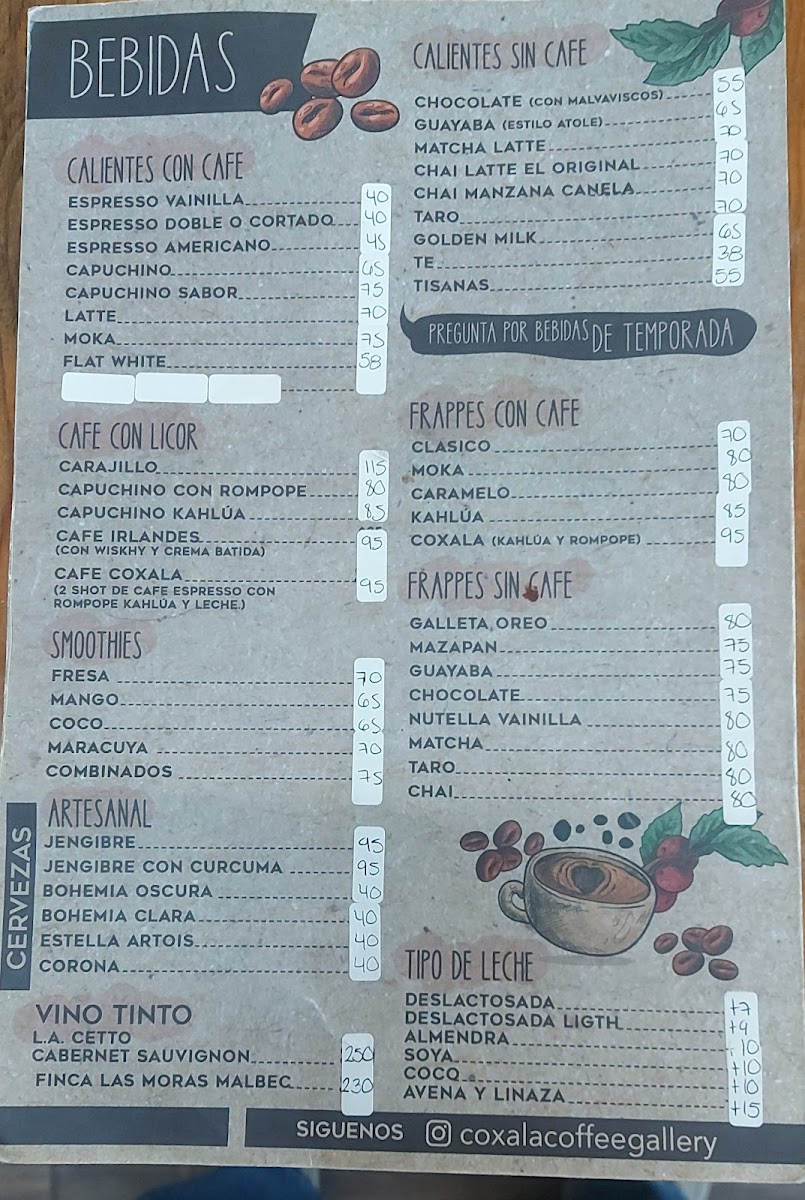 BEBIDAS
CALIENTES CON CAFE
ESPRESSO VAINILLA 40
ESPRESSO DOBLE O CORTADO 40
ESPRESSO AMERICANO 45
CAPUCHINO 65
CAPUCHINO SABOR 75
LATTE 70
MOKA 75
FLAT WHITE 58
CAFE CON LICOR
CARAJILLO 115
CAPUCHINO CON ROMPOPE 80
CAPUCHINO KAHLÚA 85
CAFE IRLANDES 95
(CON WISKHY Y CREMA BATIDA)
CAFE COXALA 95
(2 SHOT DE CAFE ESPRESSO CON
ROMPOPE KAHLÚA Y LECHE.)
SMOOTHIES
FRESA 70
MANGO 65
COCO 65
MARACUYA 70
COMBINADOS 75
CERVEZAS
ARTESANAL
JENGIBRE 95
JENGIBRE CON CURCUMA 95
BOHEMIA OSCURA 40
BOHEMIA CLARA 40
ESTELLA ARTOIS 40
CORONA 40
VINO TINTO
L.A. CETTO
CABERNET SAUVIGNON 250
FINCA LAS MORAS MALBEC 230
CALIENTES SIN CAFE
CHOCOLATE (CON MALVAVISCOS) 55
GUAYABA (ESTILO ATOLE) 65
MATCHA LATTE 70
CHAI LATTE EL ORIGINAL 70
CHAI MANZANA CANELA 70
TARO 70
GOLDEN MILK 65
TE 38
TISANAS 55
PREGUNTA POR BEBIDAS DE TEMPORADA
FRAPPES CON CAFE
CLASICO 70
MOKA 80
CARAMELO 80
KAHLÚA 85
COXALA (KAHLÚA Y ROMPOPE) 95
FRAPPES SIN CAFE
GALLETA OREO 80
MAZAPAN 75
GUAYABA 75
CHOCOLATE 75
NUTELLA VAINILLA 80
MATCHA 80
TARO 80
CHAI 80
TIPO DE LECHE
DESLACTOSADA +7
DESLACTOSADA LIGTH +9
ALMENDRA +10
SOYA +10
COCO +10
AVENA Y LINAZA +15
SIGUENOS coxalacoffeegallery